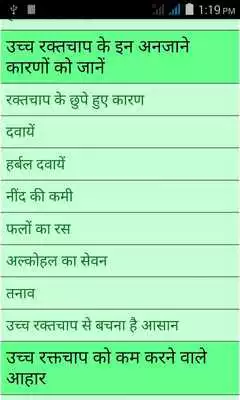 1:19 PM
उच्च रक्तचाप के इन अनजाने
कारणों को जानें
रक्तचाप के छुपे हुए कारण
दवायें
हर्बल दवायें
नींद की कमी
फलों का रस
अल्कोहल का सेवन
तनाव
उच्च रक्तचाप से बचना है आसान
उच्च रक्तचाप को कम करने वाले
आहार